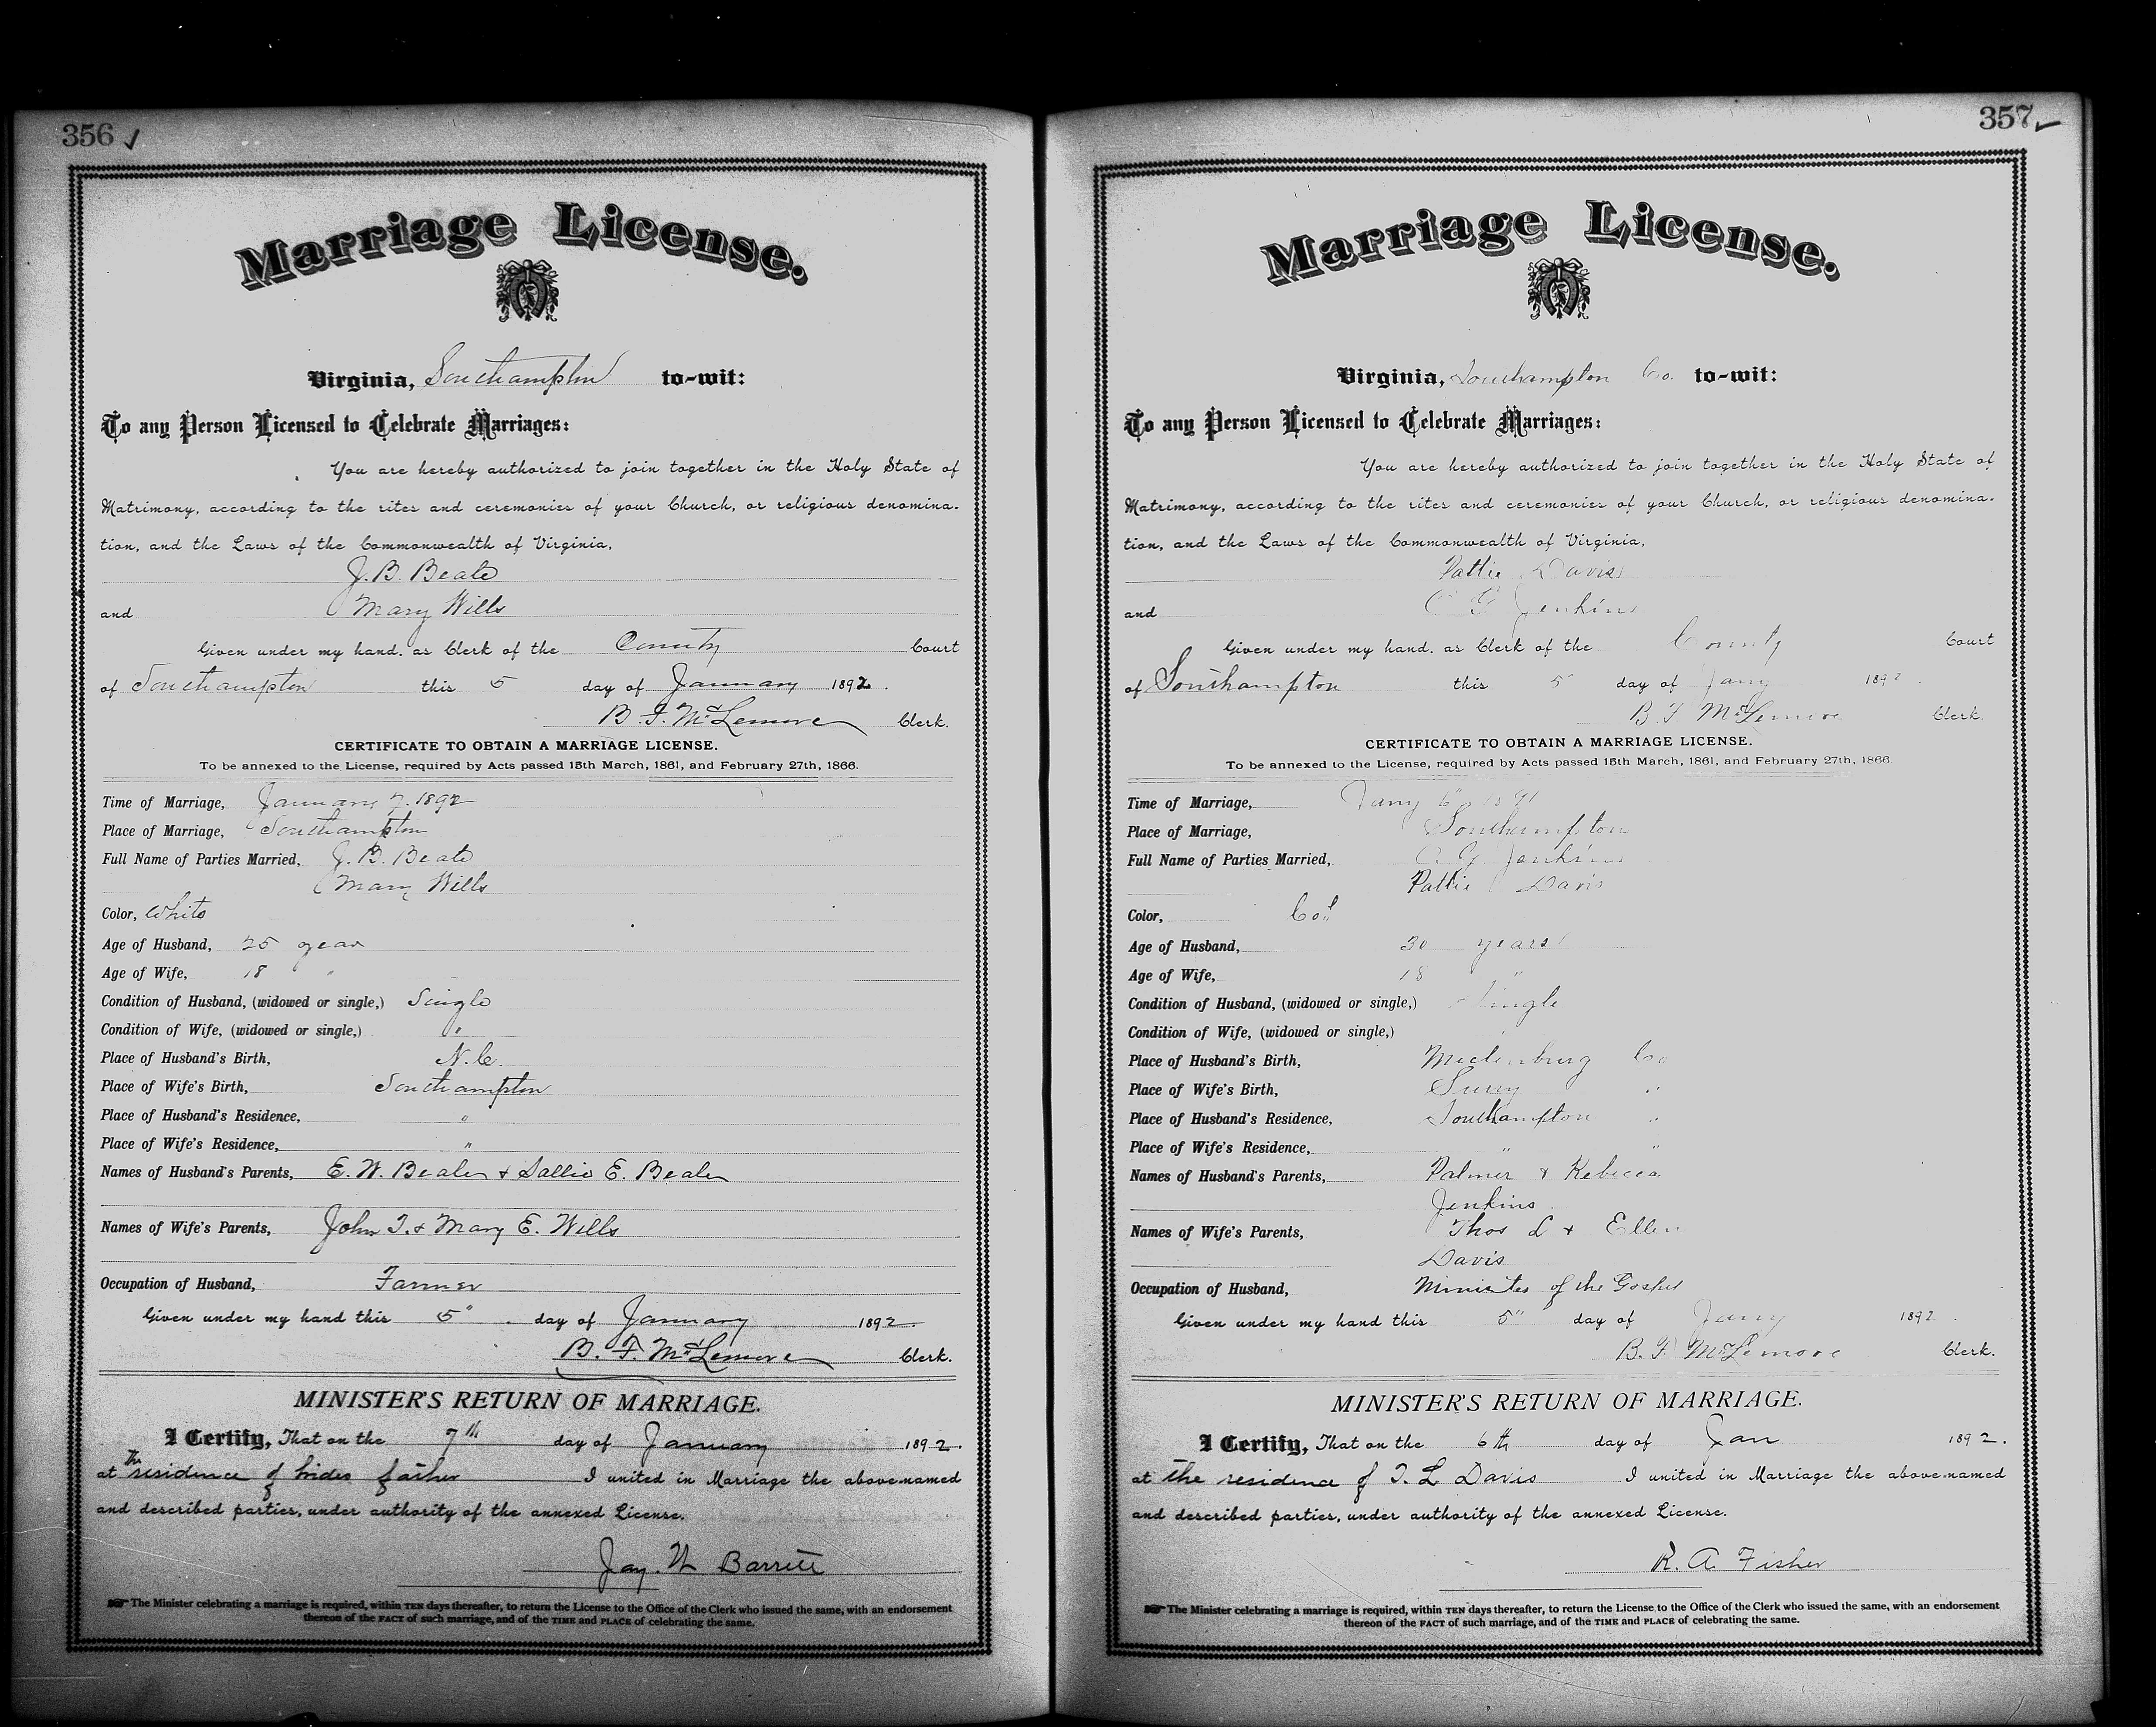 356
Marriage License.
Virginia, Southampton to-wit:
To any Person Licensed to Celebrate Marriages:
You are hereby authorized to join together in the Holy State of
Matrimony, according to the rites and ceremonies of your Church, or religious denomina-
tion, and the Laws of the Commonwealth of Virginia,
J. B. Beale
and Mary Wills
Given under my hand, as Clerk of the County Court
of Southampton this 5 day of January 1892.
B. F. McLemore Clerk.
CERTIFICATE TO OBTAIN A MARRIAGE LICENSE.
To be annexed to the License, required by Acts passed 15th March, 1861, and February 27th, 1866.
Time of Marriage, January 7. 1892
Place of Marriage, Southampton
Full Name of Parties Married, J. B. Beale
Mary Wills
Color, White
Age of Husband, 25 year
Age of Wife, 18 "
Condition of Husband, (widowed or single,) Single
Condition of Wife, (widowed or single,) "
Place of Husband's Birth, N. C.
Place of Wife's Birth, Southampton
Place of Husband's Residence, "
Place of Wife's Residence, "
Names of Husband's Parents, E. W. Beale & Sallie E. Beale
Names of Wife's Parents, John T. & Mary E. Wills
Occupation of Husband, Farmer
Given under my hand this 5" day of January 1892.
B. F. McLemore Clerk.
MINISTER'S RETURN OF MARRIAGE.
I Certify, That on the 7th day of January 1892.
at the residence of brides father I united in Marriage the above-named
and described parties, under authority of the annexed License.
Barrett
The Minister celebrating a marriage is required, within TEN days thereafter, to return the License to the Office of the Clerk who issued the same, with an endorsement
thereon of the FACT of such marriage, and of the TIME and PLACE of celebrating the same.
357
Marriage License.
Virginia, Southampton Co. to-wit:
To any Person Licensed to Celebrate Marriages:
You are hereby authorized to join together in the Holy State of
Matrimony, according to the rites and ceremonies of your Church, or religious denomina-
tion, and the Laws of the Commonwealth of Virginia,
Pattie Davis
and C G Jenkins
Given under my hand, as Clerk of the County Court
of Southampton this 5" day of Jany 1892.
B. F McLemore Clerk.
CERTIFICATE TO OBTAIN A MARRIAGE LICENSE.
To be annexed to the License, required by Acts passed 15th March, 1861, and February 27th, 1866
Time of Marriage, Jany 6" 1891
Place of Marriage, Southampton
Full Name of Parties Married, C. G. Jenkins
Pattie Davis
Color, Cold
Age of Husband, 30 years
Age of Wife, 18 "
Condition of Husband, (widowed or single,) Single
Condition of Wife, (widowed or single,)
Place of Husband's Birth, Meclenburg Co
Place of Wife's Birth, Surry "
Place of Husband's Residence, Southampton "
Place of Wife's Residence, " "
Names of Husband's Parents, Palmer & Rebecca
Jenkins
Names of Wife's Parents, Thos L & Ellen
Davis
Occupation of Husband, Minister of the Gospel
Given under my hand this 5" day of Jany 1892.
B. F McLemore Clerk.
MINISTER'S RETURN OF MARRIAGE.
I Certify, That on the 6th day of Jan 1892.
at the residence of T. L Davis I united in Marriage the above-named
and described parties, under authority of the annexed License.
R. A. Fisher
The Minister celebrating a marriage is required, within TEN days thereafter, to return the License to the Office of the Clerk who issued the same, with an endorsement
thereon of the FACT of such marriage, and of the TIME and PLACE of celebrating the same.